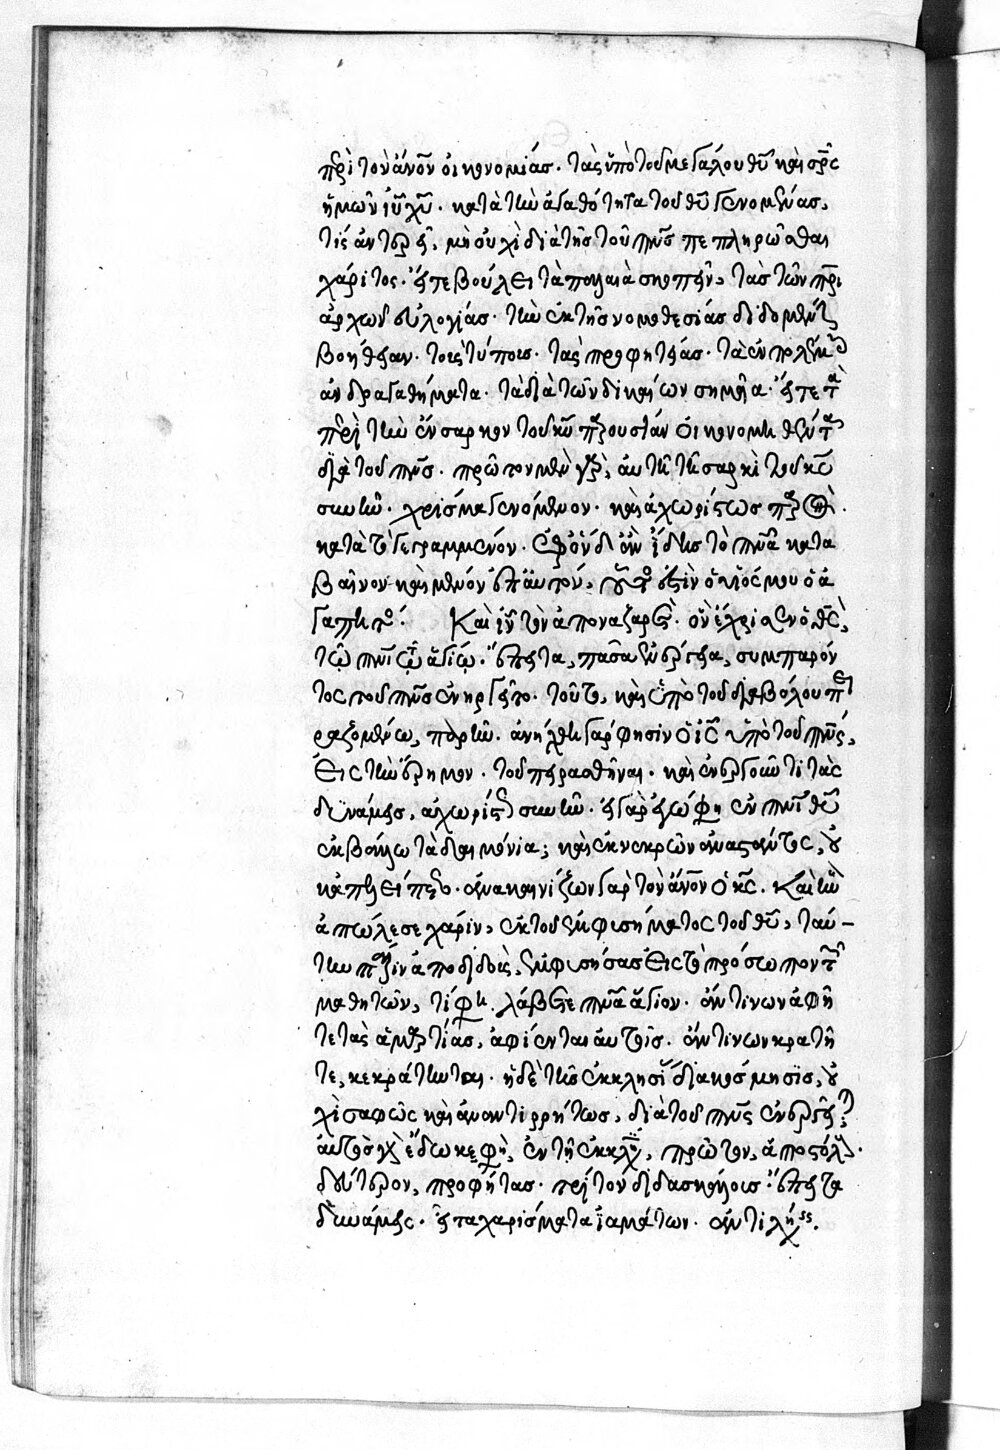 περὶ τὸν ἄνον οἰκονομίας. τὰς ὑπὸ τοῦ μεγάλου θυ καὶ σρς
ἡμῶν ιυ χυ. κατὰ τὴν ἀγαθότητα τοῦ θυ γενομένας,
τίς ἀντερεῖ, μὴ οὐχὶ διὰ τῆς τοῦ πνς πεπληρῶσθαι
χάριτος. εἴτε βούλει τὰ παλαιὰ σκοπεῖν, τὰς τῶν πρι
αρχῶν εὐλογίας. τὴν ἐκ τῆς νομοθεσίας διδομένην
βοήθειαν. τοὺς τύπους. τὰς προφητείας. τὰ ἐν πολέμοις
ἀνδραγαθήματα. τὰ διὰ τῶν δικαίων σημεῖα. εἴτε τὰ
περὶ τὴν ἔνσαρκον τοῦ κυ παρουσίαν οἰκονομηθέντα
διὰ τοῦ πνς. πρῶτον μὲν γὰρ, αὐτῇ τῇ σαρκὶ τοῦ κυ
συνῆν. χρίσμα γενόμενον. καὶ ἀχωρίστως παρὸν.
κατὰ τὸ γεγραμμένον. ἐφ᾽ ὃν ἂν ἴδῃς τὸ πνα κατα
βαῖνον καὶ μένον ἐπ᾽ αὐτόν, οὗτος ἐστὶν ὁ υἱός μου ὁ ἀ
γαπητός. Καὶ ιν τὸν ἀπὸ ναζαρὲτ. ὃν ἔχρισεν ὁ θς,
τῷ πνι τῷ ἁγίῳ. ἔπειτα, πᾶσα ἐνέργεια, συμπαρόν
τος τοῦ πνς ἐνηργεῖτο. τοῦτο, καὶ ὑπὸ τοῦ διαβόλου πει
ραζομένῳ, παρῆν. ἀνήχθη γάρ φησιν ὁ ις ὑπὸ τοῦ πνς,
εἰς τὴν ἔρημον. τοῦ πειρασθῆναι. καὶ ἐνεργοῦντι τὰς
δυνάμεις, ἀχωρίστως συνῆν. εἰ γὰρ ἐγώ φη ἐν πνι θυ
ἐκβάλλω τὰ δαιμόνια; καὶ ἐκ νεκρῶν ἀναστάντος, οὐ
κ ἀπελείπετο. ἀνακαινίζων γὰρ τὸν ἄνον ὁ κς. καὶ ἣν
ἀπώλεσε χάριν, ἐκ τοῦ ἐμφυσήματος τοῦ θυ, ταύ-
την πάλιν ἀποδιδοὺς, ἐμφυσήσας εἰς τὸ πρόσωπον τῶν
μαθητῶν, τί φη. λάβετε πνα ἅγιον. ἄν τινων ἀφῆ
τε τὰς ἁμαρτίας, ἀφίενται αὐτοῖς. ἄν τινων κρατῆ
τε, κεκράτηνται. ἡ δὲ τῆς ἐκκλησίας διακόσμησις, οὐ
χὶ σαφῶς καὶ ἀναντιρρήτως, διὰ τοῦ πνς ἐνεργεῖται;
αὐτὸς γὰρ ἔδωκε φη, ἐν τῇ ἐκκλη, πρῶτον, ἀποστόλους.
δεύτερον, προφήτας. τρίτον διδασκάλους. ἔπειτα
δυνάμεις. εἶτα χαρίσματα ἰαμάτων. ἀντιλήψεις.